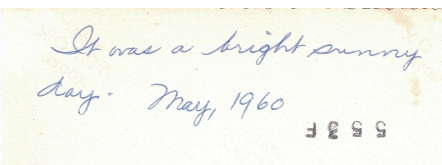 It was a bright sunny
day. May, 1960